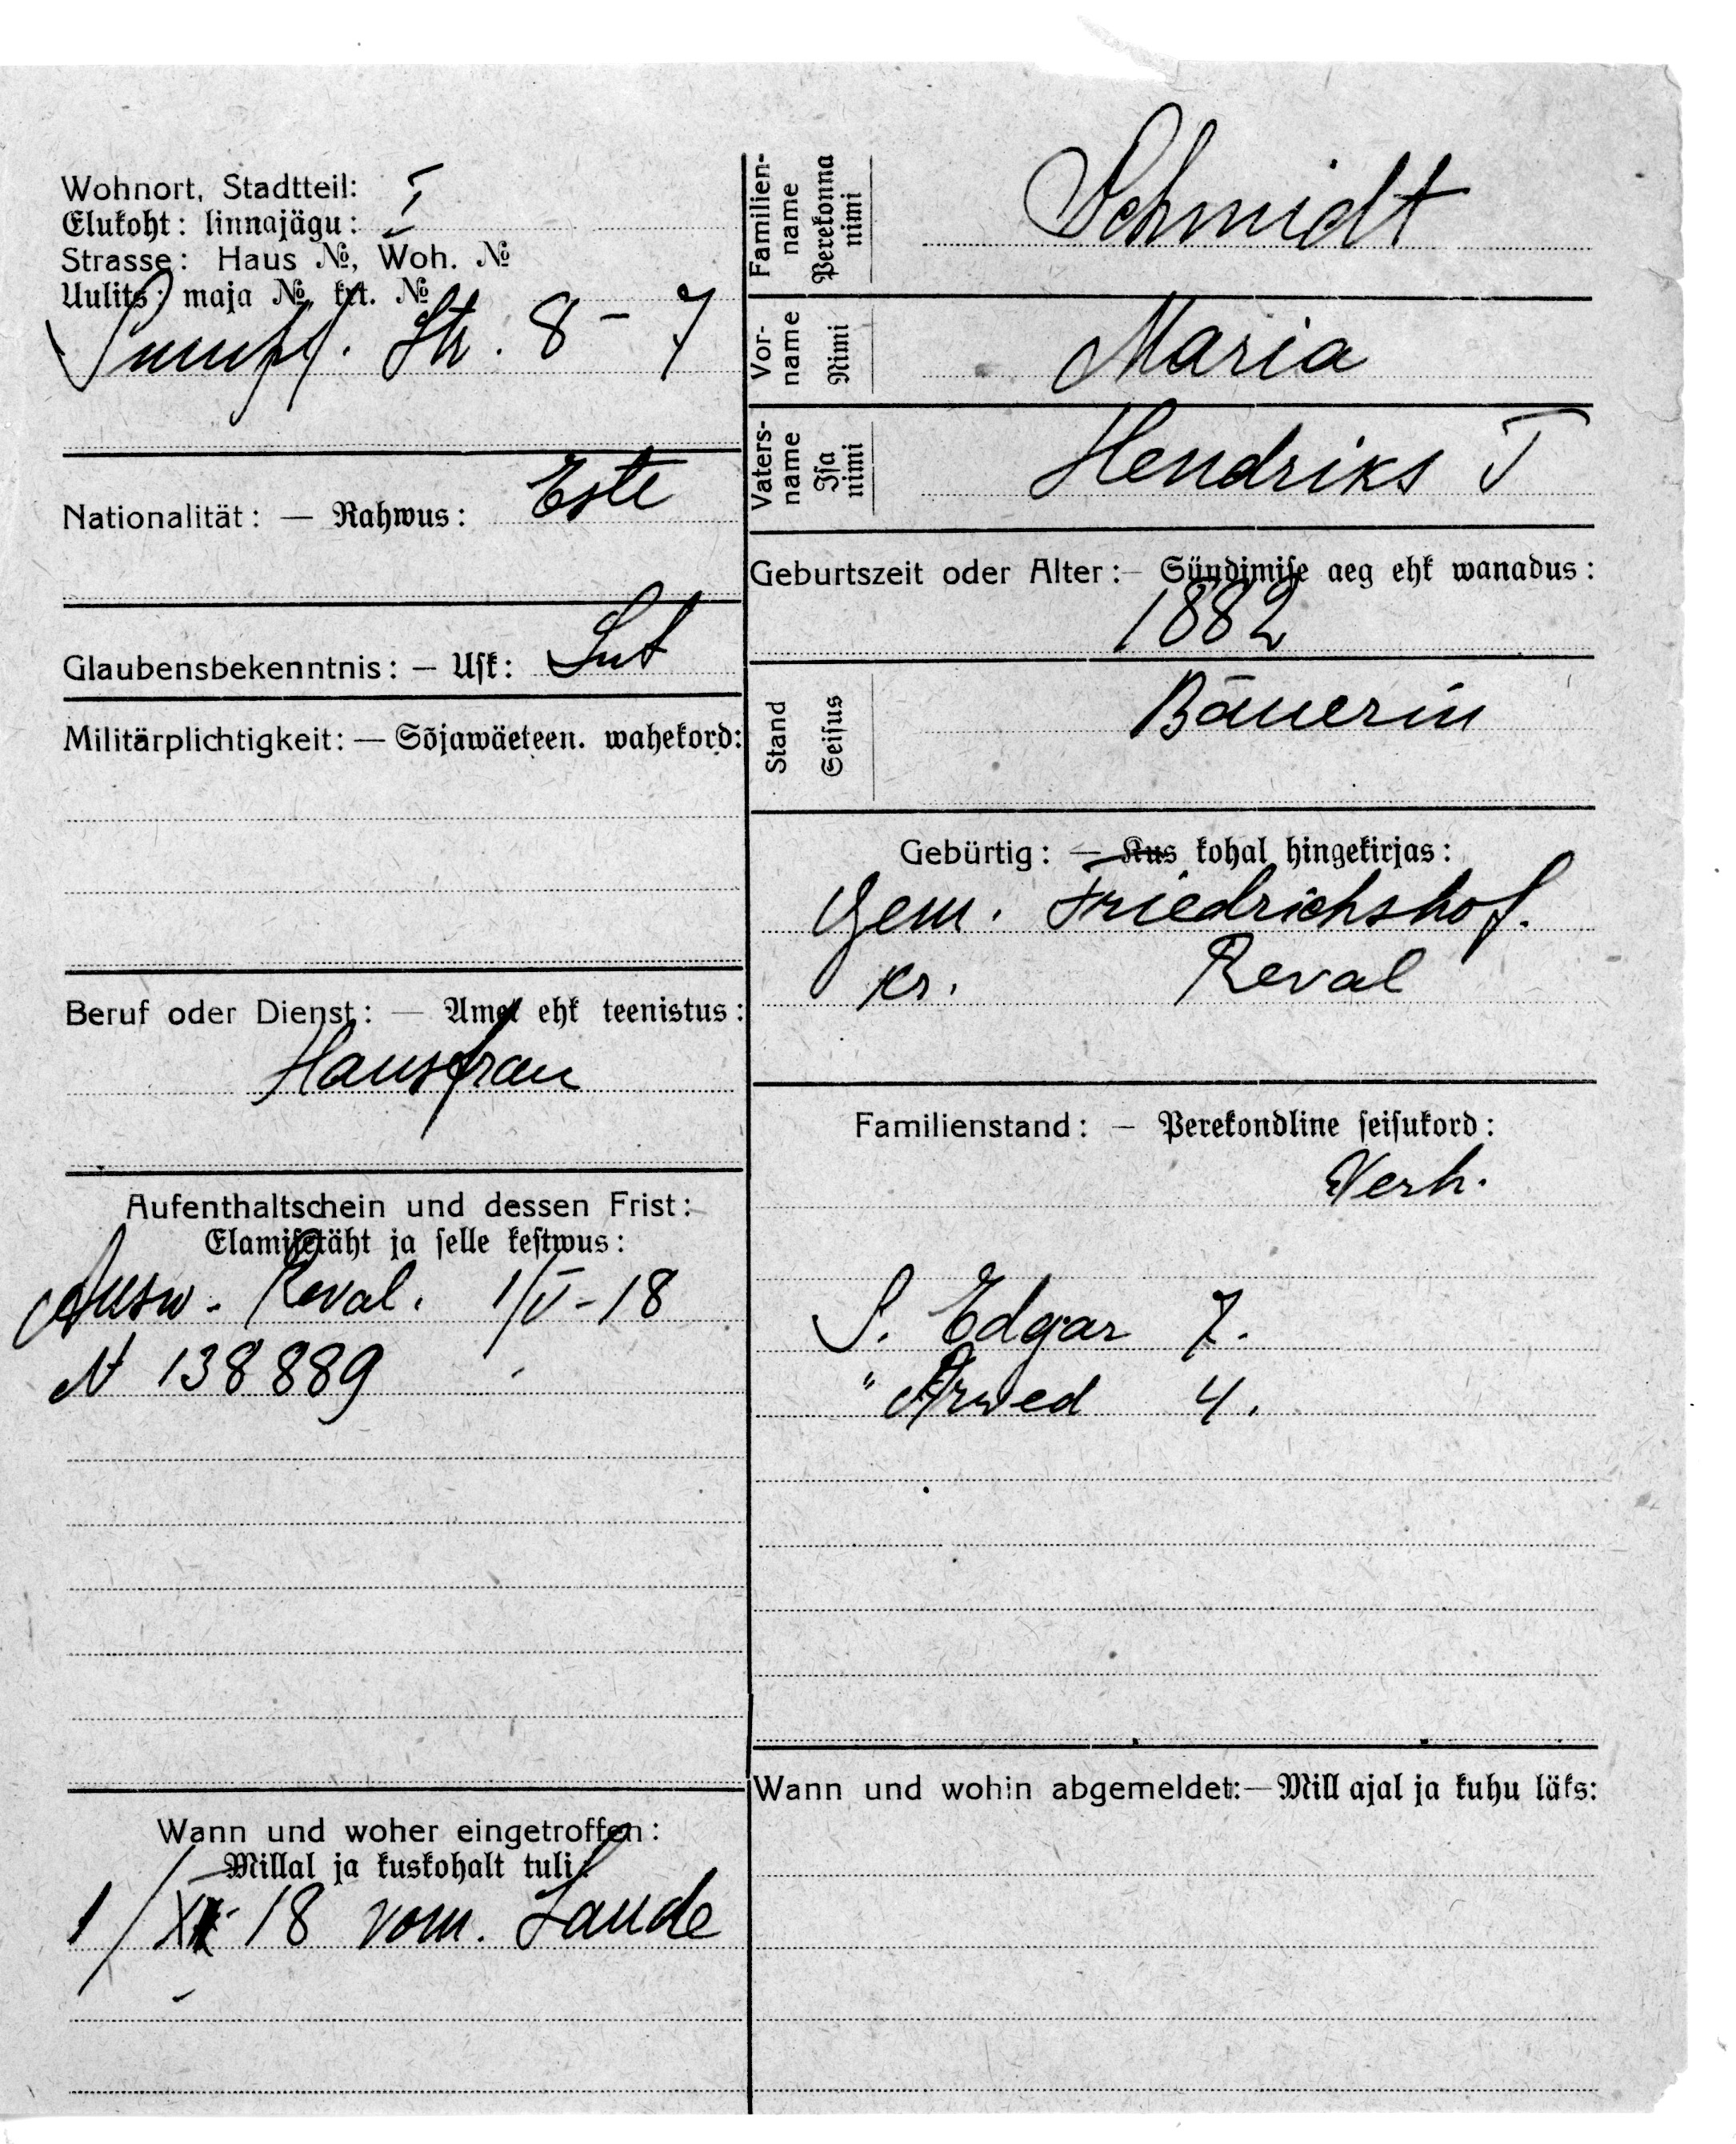 Wohnort, Stadtteil: I
Elukoht: linnajägu:
Strasse: Haus №, Woh. №
Uulits: maja № krt. №
Sumpf. Str. 8 - 7
Nationalität: — Rahwus: Este
Glaubensbekenntnis: — Usk: Lut
Militärplichtigkeit: — Sõjawäeteen. wahekord:
Beruf oder Dienst: — Amet ehk teenistus:
Hausfrau
Aufenthaltschein und dessen Frist:
Elamisetäht ja selle kestwus:
Ausw. Reval. 1/V-18
N 138889
Wann und woher eingetroffen:
Millal ja kuskohalt tuli:
18 vom. Lande
Familien-
name
Perekonna
nimi
Schmidt
Vor-
name
Nimi
Maria
Vaters-
name
Isa
nimi
Hendriks T
Geburtszeit oder Alter: — Sündimise aeg ehk wanadus:
1882
Stand
Seisus
Bäuerin
Gebürtig: — Kus kohal hingekirjas:
Gem. Friedrichshof.
Kr. Reval
Familienstand: — Perekondline seisukord:
Verh.
S. Edgar 7.
" Arwed 4.
Wann und wohin abgemeldet: — Mill ajal ja kuhu läks: